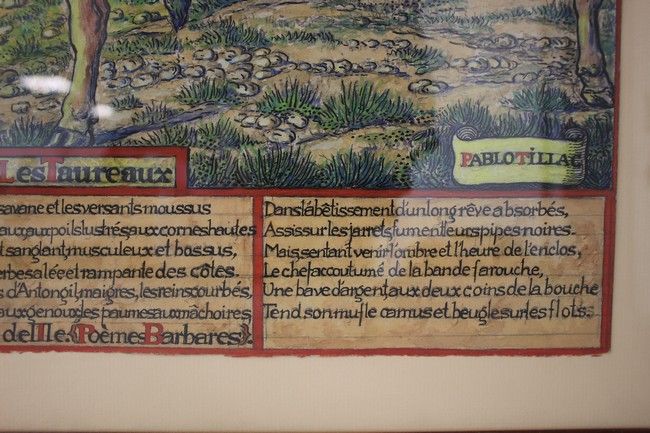 PABLO TILLAC
Les Taureaux
savane et les versants moussus
aux poils lustrés, aux cornes hautes
sanglant, musculeux et bossus,
salée et rampante des côtes.
d'Antongil, maigres, les reins courbés,
aux genoux, les paumes aux mâchoires
de l'Ile. (Poèmes Barbares).
Dans l'abêtissement d'un long rêve absorbés,
Assis sur les jarrets, fument leurs pipes noires.
Mais, sentant venir l'ombre et l'heure de l'enclos,
Le chef accoutumé de la bande farouche,
Une bave d'argent, aux deux coins de la bouche
Tend son mufle camus et beugle sur les flots.